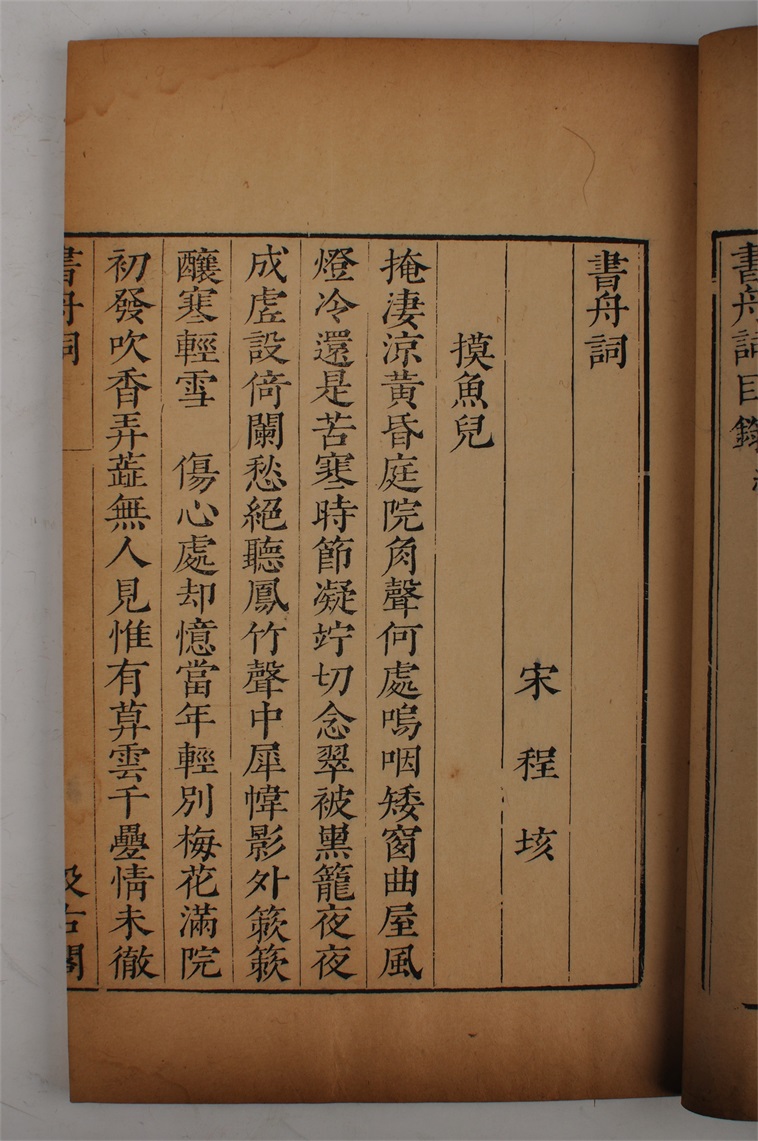 書舟詞目錄
書舟詞
宋 程 垓
摸魚兒
掩淒涼黃昏庭院角聲何處嗚咽矮窗曲屋風
燈冷還是苦寒時節凝竚切念翠被熏籠夜夜
成虛設倚闌愁絕聽鳳竹聲中犀幃影外簌簌
釀寒輕雪 傷心處却憶當年輕別梅花滿院
初發吹香弄蕋無人見惟有暮雲千疊情未徹
書舟詞 汲古閣